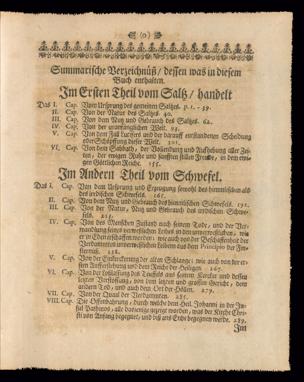 (0)
Summarische Verzeichnüß / dessen was in diesem
Buch enthalten.
Im Ersten Theil vom Saltz / handelt
Das I. Cap. Vom Ursprung des gemeinen Saltzes. p. 1. - 39.
II. Cap. Von der Natur des Saltzes. 40.
III. Cap. Von dem Nutz und Gebrauch des Saltzes. 62.
IV. Cap. Von der uranfänglichen Welt. 93.
V. Cap. Von dem Fall Lucifers und der daraus entstandenen Scheidung
oder Schöpffung dieser Welt. 101.
VI. Cap. Von dem Sabbath / der Vollendung und Auffhebung aller Zei-
ten / der ewigen Ruhe und sanfften stillen Freude / in dem ewi-
gen Göttlichen Reiche. 155.
Im Andern Theil vom Schwefel.
Das I. Cap. Von dem Ursprung und Erzeugung sowohl des himmlischen als
des irdischen Schwefels. 167.
II. Cap. Von dem Nutz und Gebrauch des himmlischen Schwefels. 191.
III. Cap. Von der Natur, Nutz und Gebrauch des irdischen Schwe-
fels. 215.
IV. Cap. Von des Menschen Zustand nach seinem Tode / und der Ver-
wandlung seines
wie er in
Verdammten
fernirk. 238.
V. Cap. Von der
sten Aufferstehung und dem Reiche der Heiligen 267.
VI. Cap. Von der Loßlassung des Teuffels aus seinem Kercker und dessen
letzter Verstossung / von dem letzten und grossen Gericht / dem
andern Tod / und auch dem Ort der Höllen. 279.
VII. Cap. Von der Quaal der Verdammten. 285.
VIII. Cap. Die Offenbahrung / durch welche dem Heil. Johanni in der In-
sul Pathmos / alle dasjenige gezeiget worden / was der Kirche Chri-
sti von Anfang begegnet / und biß ans Ende begegnen werde. 289.
Im